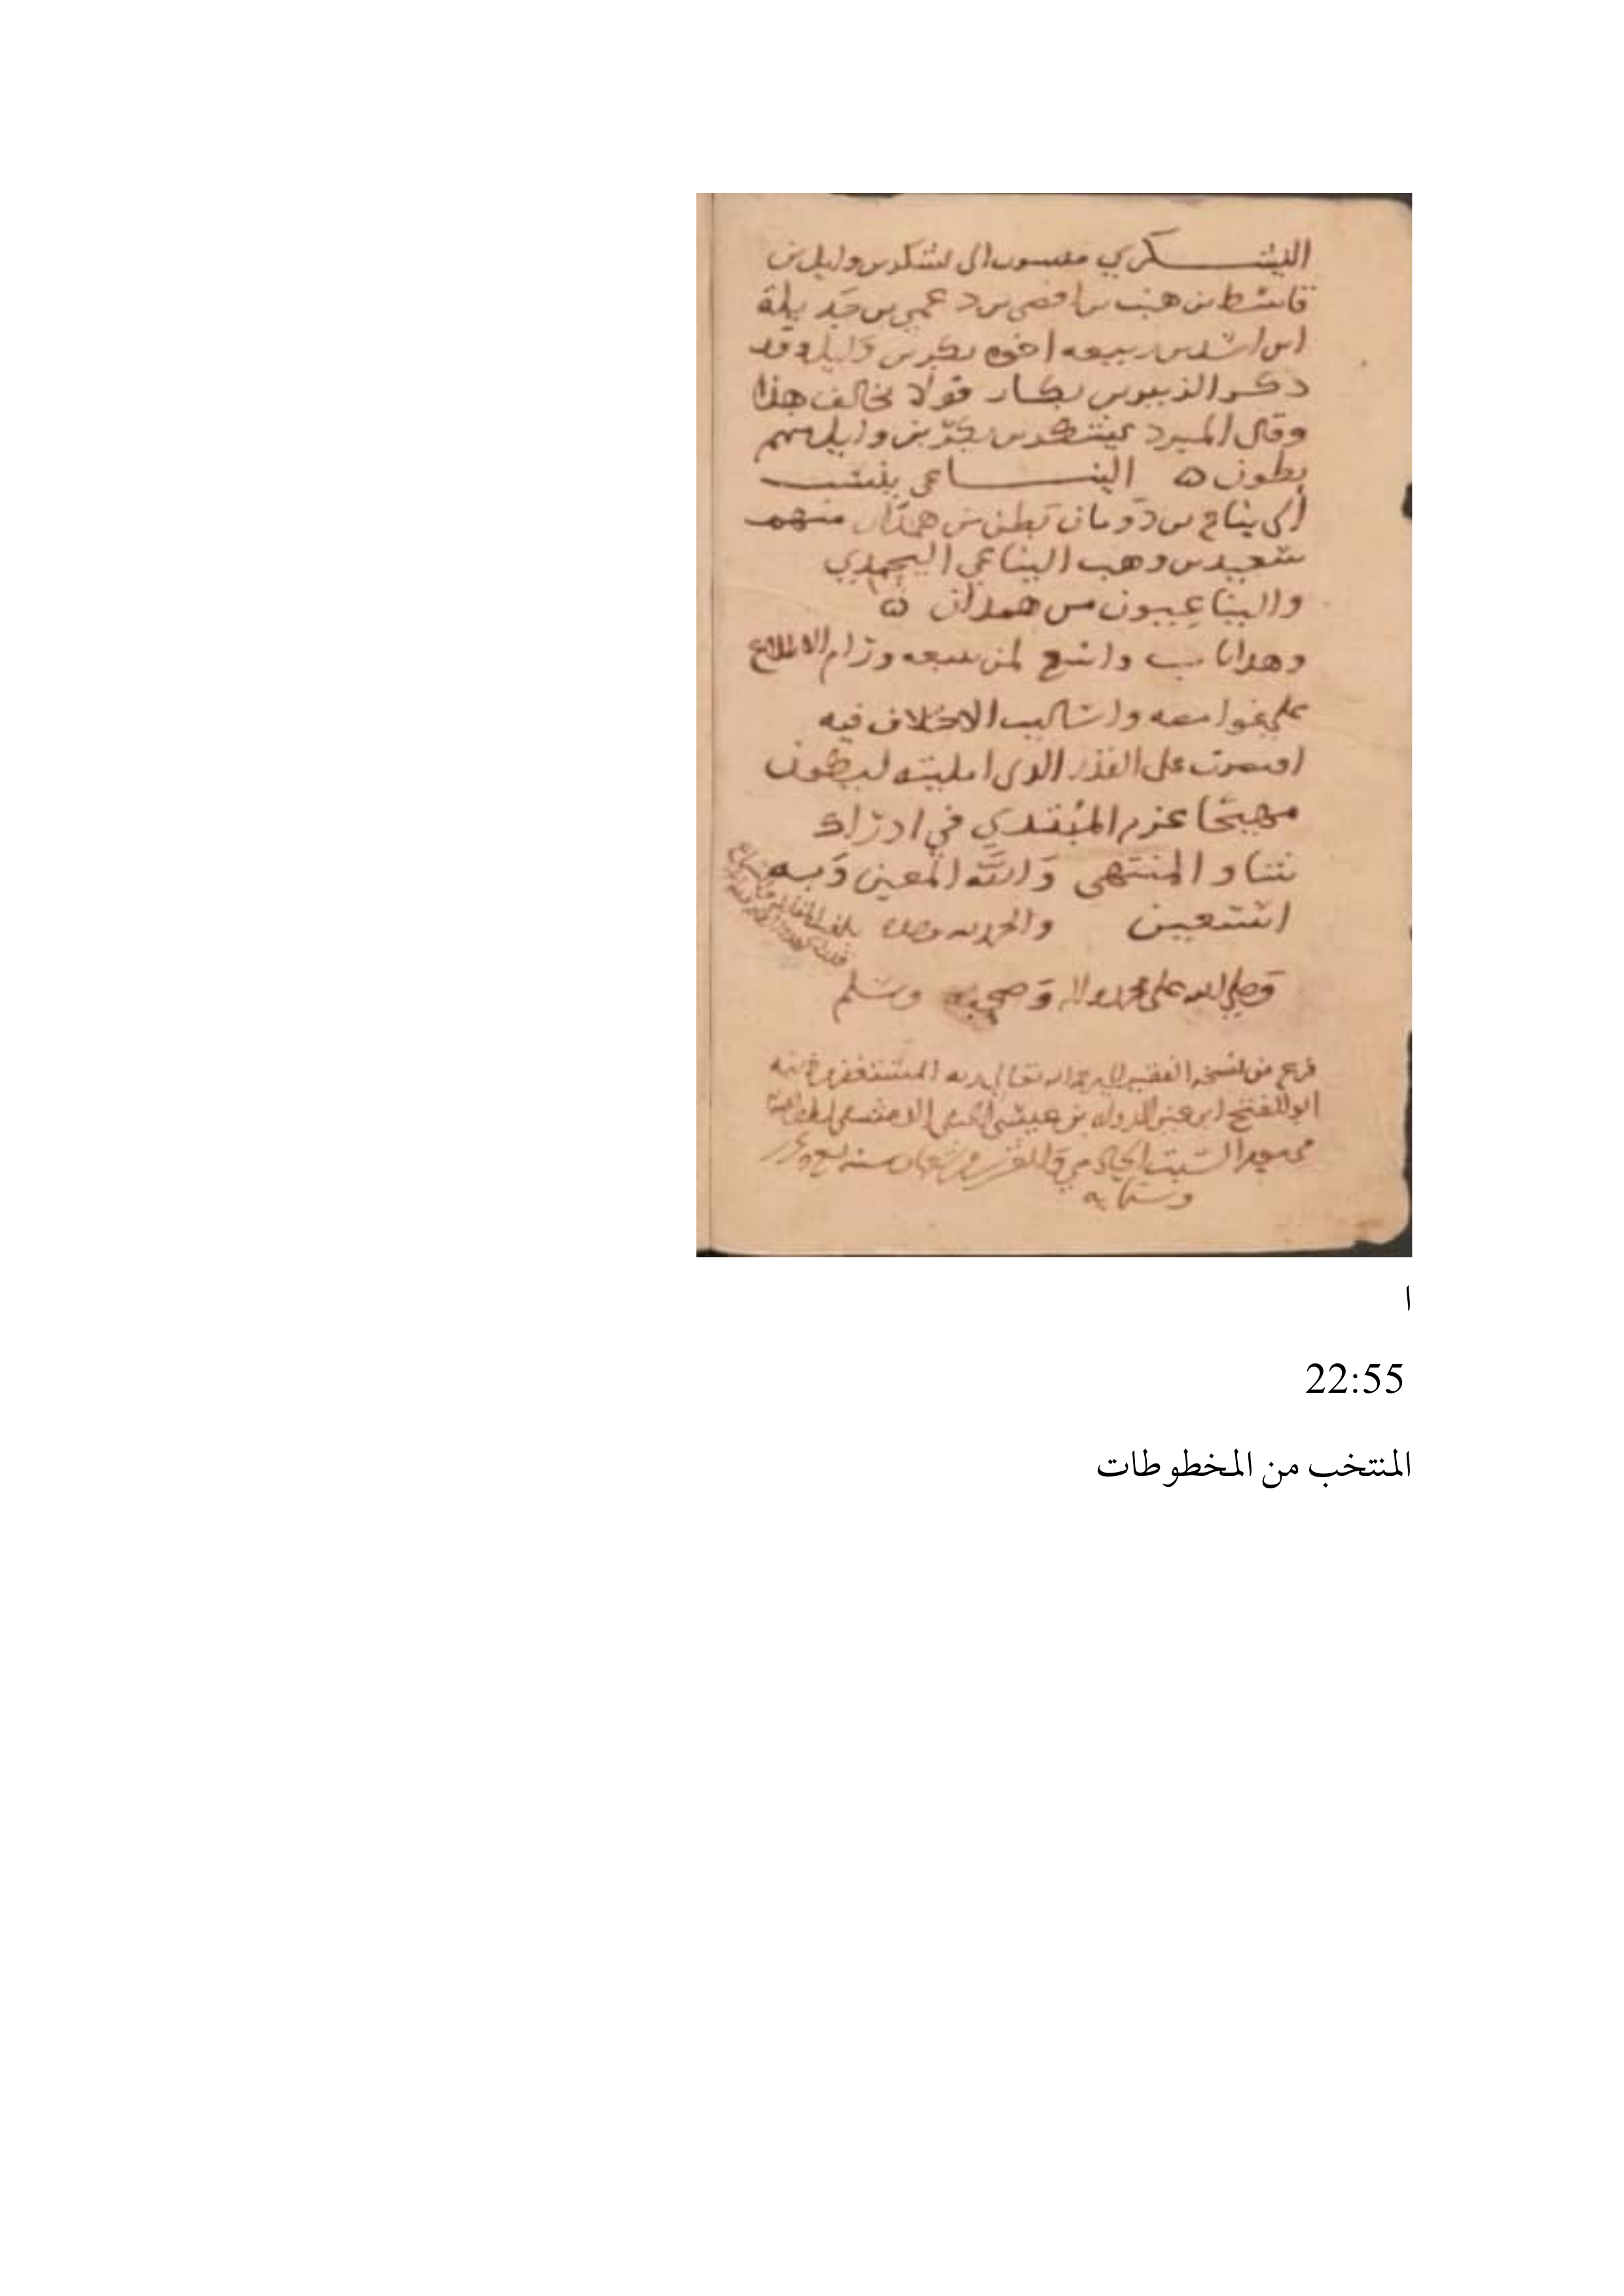 اليشكري منسوب الى يشكر بن وايل بن
قاسط بن هنب بن افصى بن دعمي بن جديلة
ابن اسد بن ربيعه اخوه بكر بن وايل وقد
ذكر الزبير بن بكار قولا يخالف هذا
وقال المبرد يشكر بن بكر بن وايل منهم
بطون ه الينــاعي ينسب
الى يناع بن دومان بطن من همدان منهم
سعيد بن وهب اليناعي اليحمدي
واليناعيون من همدان ه
وهذا باب واسع لمن تتبعه ورام الاطلاع
على غوامضه واساليب الاختلاف فيه
اقتصرت على القدر الذى امليته ليكون
مهيجا عزم المبتدي في ادراك
شاو المنتهى وَالله المعين وَبه
استعين والحمد لله وحده
وَصلى الله على محمد واله وَصحبه وسلم
فرغ من نسخه الفقير الى الله تعالى المستغفر من ذنبه
ابو الفتح ابن عز الدوله بن عيسى
السبت الحادي والعشرين من شعبان سنه
وستمايه
ا
22:55
المنتخب من المخطوطات